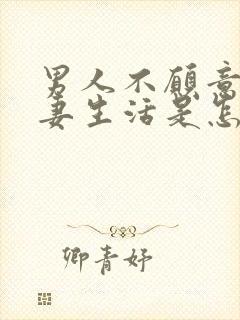 男人不愿意
妻生活是怎
卿青妤